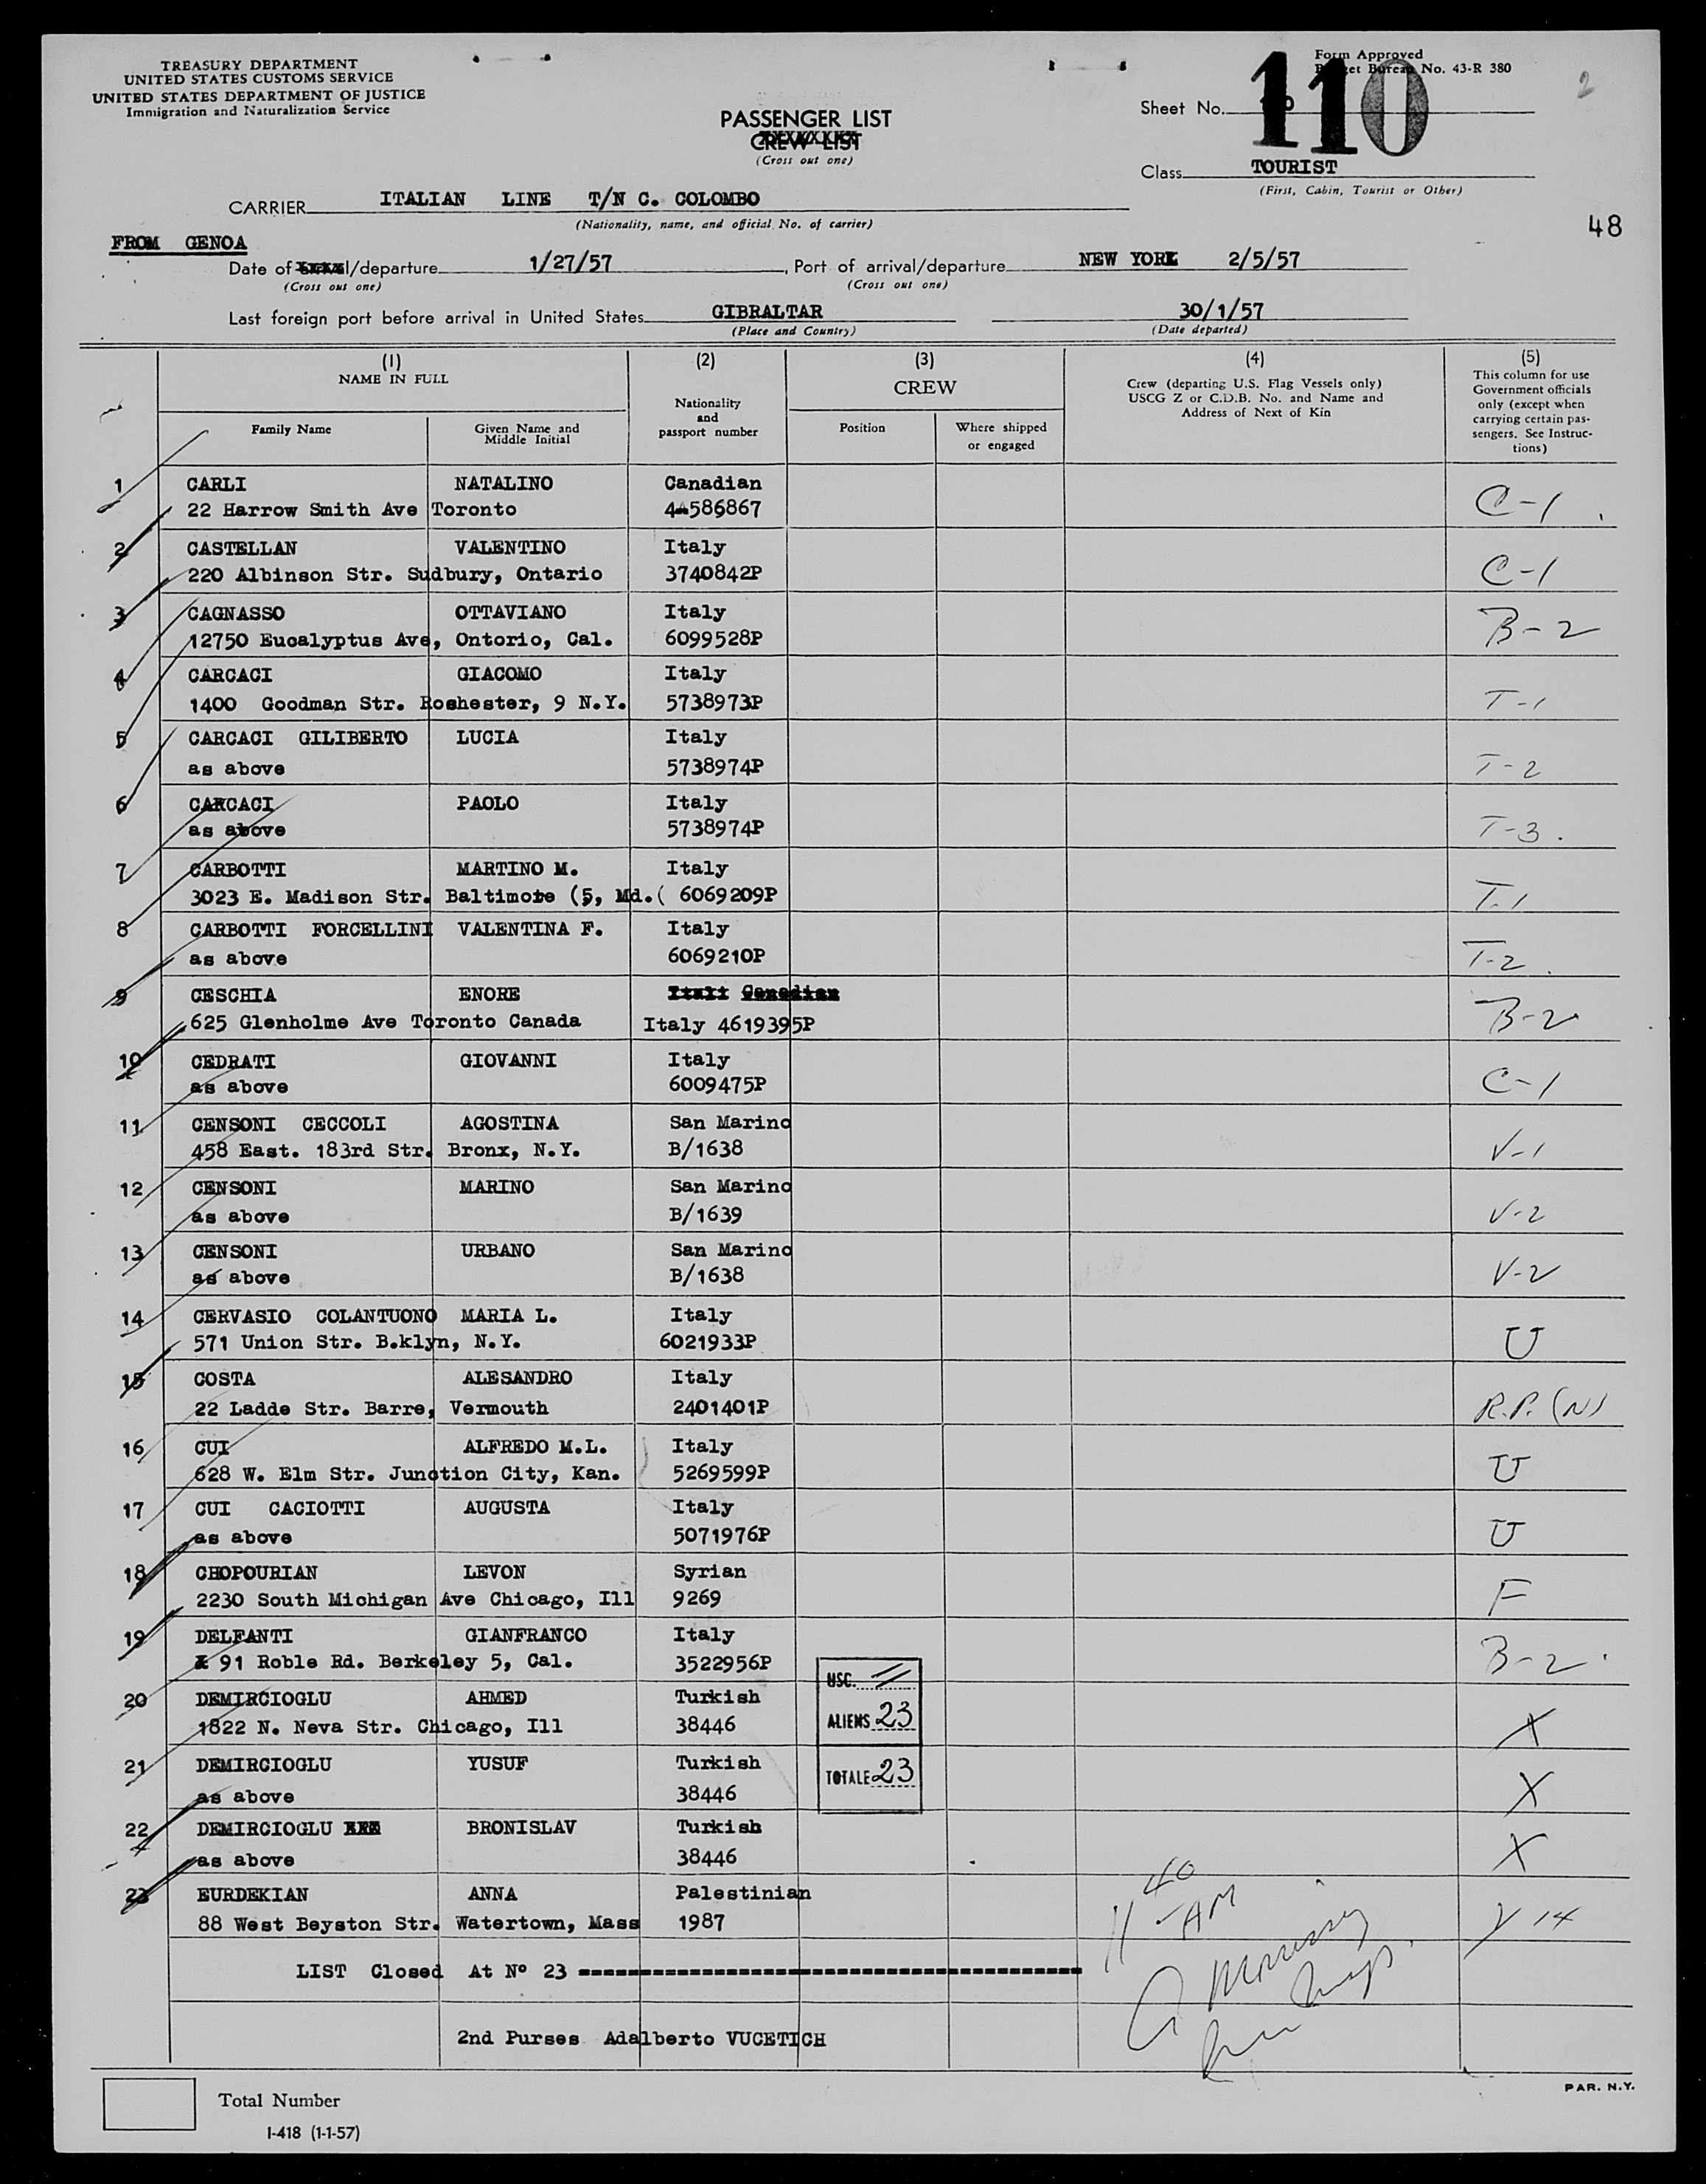 TREASURY DEPARTMENT
UNITED STATES CUSTOMS SERVICE
UNITED STATES DEPARTMENT OF JUSTICE
Immigration and Naturalization Service
PASSENGER LIST
CREW LIST
(Cross out one)
Form Approved
Budget Bureau No. 43-R 380
2
Sheet No. 110
Class TOURIST
(First, Cabin, Tourist or Other)
CARRIER ITALIAN LINE T/N C. COLOMBO
(Nationality, name, and official No. of carrier)
48
FROM GENOA
Date of /departure 1/27/57, Port of arrival/departure NEW YORK 2/5/57
(Cross out one) (Cross out one)
Last foreign port before arrival in United States GIBRALTAR 30/1/57
(Place and Country) (Date departed)
(1) NAME IN FULL
Family Name
Given Name and Middle Initial
(2)
Nationality and passport number
(3)
CREW
Position
Where shipped or engaged
(4)
Crew (departing U.S. Flag Vessels only)
USCG Z or C.D.B. No. and Name and
Address of Next of Kin
(5)
This column for use
Government officials
only (except when
carrying certain pas-
sengers. See Instruc-
tions)
1 CARLI NATALINO Canadian
22 Harrow Smith Ave Toronto 4-586867 C-1
2 CASTELLAN VALENTINO Italy
220 Albinson Str. Sudbury, Ontario 3740842P C-1
3 CAGNASSO OTTAVIANO Italy
12750 Eucalyptus Ave, Ontorio, Cal. 6099528P B-2
4 CARCACI GIACOMO Italy
1400 Goodman Str. Roshester, 9 N.Y. 5738973P T-1
5 CARCACI GILIBERTO LUCIA Italy
as above 5738974P T-2
6 CARCACI PAOLO Italy
as above 5738974P T-3
7 CARBOTTI MARTINO M. Italy
3023 E. Madison Str. Baltimore (5, Md.( 6069209P T-1
8 CARBOTTI FORCELLINI VALENTINA F. Italy
as above 6069210P T-2
9 CESCHIA ENORE Canadian
625 Glenholme Ave Toronto Canada Italy 4619395P B-2
10 CEDRATI GIOVANNI Italy
as above 6009475P C-1
11 CENSONI CECCOLI AGOSTINA San Marino
458 East. 183rd Str. Bronx, N.Y. B/1638 V-1
12 CENSONI MARINO San Marino
as above B/1639 V-2
13 CENSONI URBANO San Marino
as above B/1638 V-2
14 CERVASIO COLANTUONO MARIA L. Italy
571 Union Str. B.klyn, N.Y. 6021933P U
15 COSTA ALESANDRO Italy
22 Ladde Str. Barre, Vermouth 2401401P R.P. (N)
16 CUI ALFREDO M.L. Italy
628 W. Elm Str. Junction City, Kan. 5269599P U
17 CUI CACIOTTI AUGUSTA Italy
as above 5071976P U
18 CHOPOURIAN LEVON Syrian
2230 South Michigan Ave Chicago, Ill 9269 F
19 DELFANTI GIANFRANCO Italy
91 Roble Rd. Berkeley 5, Cal. 3522956P B-2
20 DEMIRCIOGLU AHMED Turkish
1822 N. Neva Str. Chicago, Ill 38446 X
21 DEMIRCIOGLU YUSUF Turkish
as above 38446 X
22 DEMIRCIOGLU BRONISLAV Turkish
as above 38446 X
23 EURDEKIAN ANNA Palestinian
88 West Beyston Str. Watertown, Mass 1987 14
USC.
ALIENS 23
TOTALE 23
11 40 AM
LIST Closed At Nº 23
2nd Purses Adalberto VUCETICH
Total Number
I-418 (1-1-57)
PAR. N.Y.